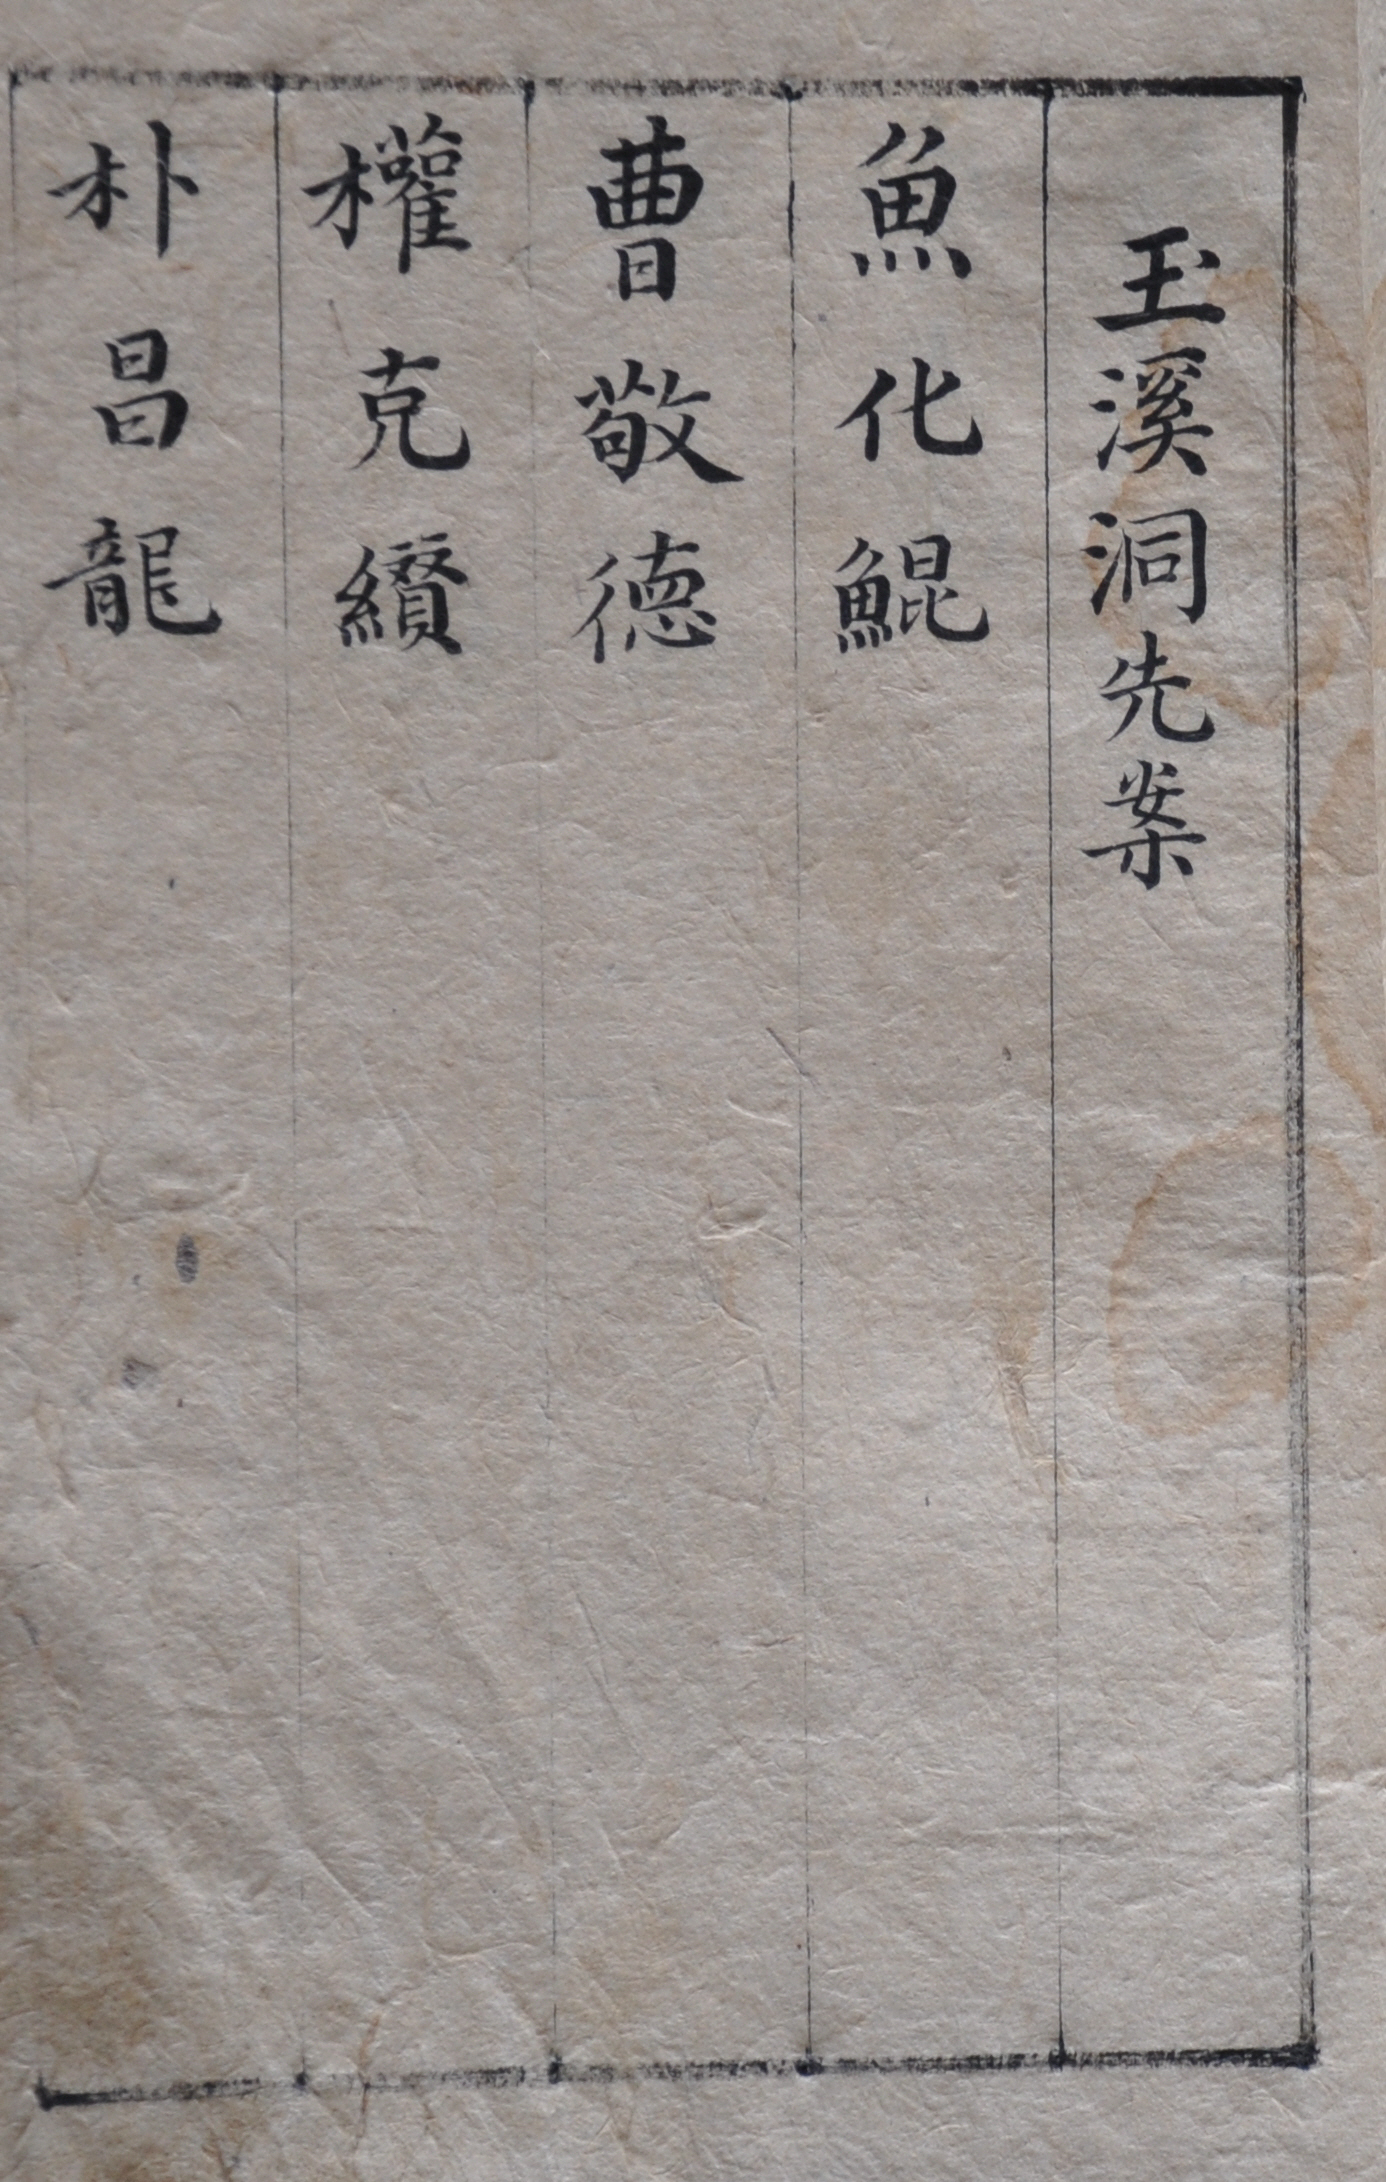 玉溪洞先案
魚化鯤
曺敬德
權克纘
朴昌龍